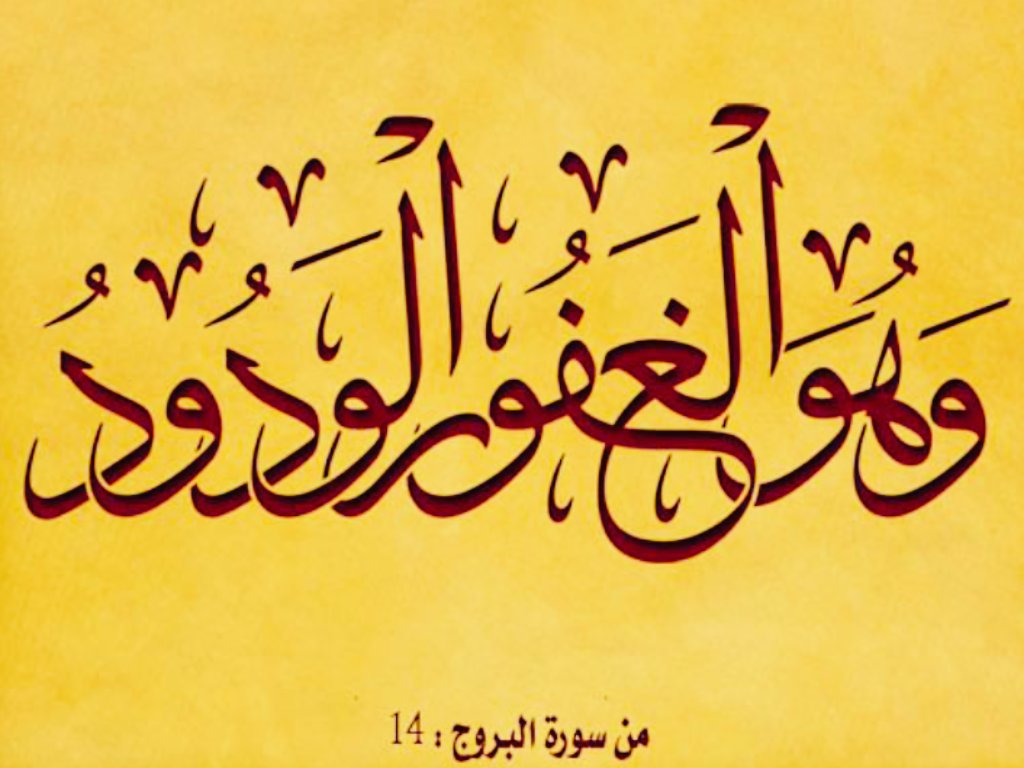 وَهُوَ الْغَفُورُ الْوَدُودُ
من سورة البروج : 14